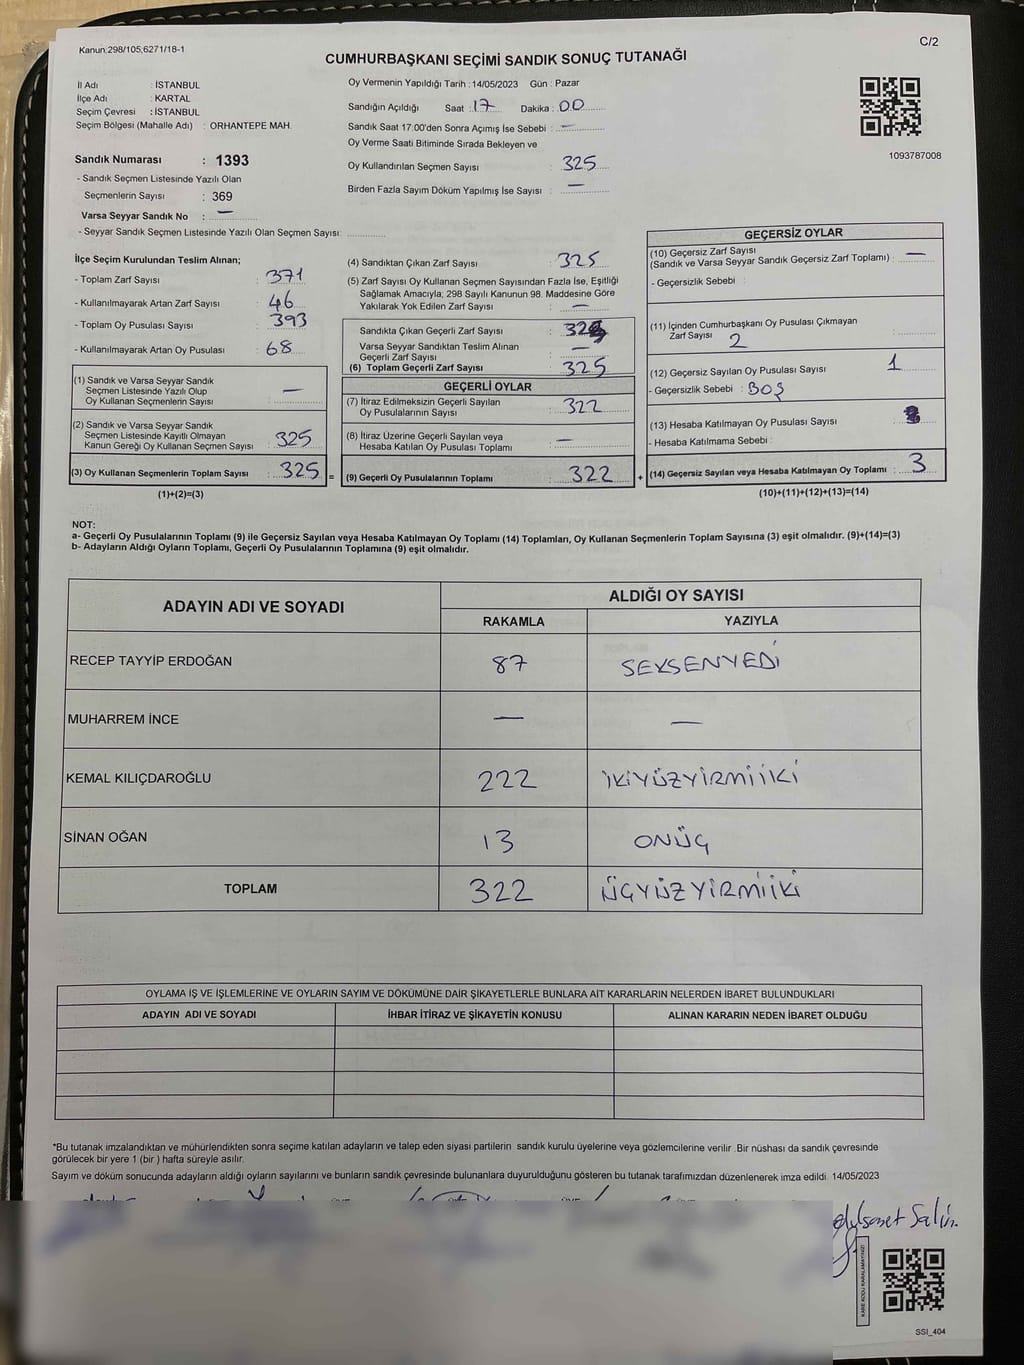 Kanun:298/105,6271/18-1
C/2
CUMHURBAŞKANI SEÇİMİ SANDIK SONUÇ TUTANAĞI
İl Adı : İSTANBUL
İlçe Adı : KARTAL
Seçim Çevresi : İSTANBUL
Seçim Bölgesi (Mahalle Adı) : ORHANTEPE MAH.
Sandık Numarası : 1393
- Sandık Seçmen Listesinde Yazılı Olan
Seçmenlerin Sayısı : 369
Varsa Seyyar Sandık No : —
- Seyyar Sandık Seçmen Listesinde Yazılı Olan Seçmen Sayısı:
Oy Vermenin Yapıldığı Tarih : 14/05/2023 Gün : Pazar
Sandığın Açıldığı Saat : 17 Dakika : 00
Sandık Saat 17:00'den Sonra Açımış İse Sebebi : —
Oy Verme Saati Bitiminde Sırada Bekleyen ve
Oy Kullandırılan Seçmen Sayısı : 325
Birden Fazla Sayım Döküm Yapılmış İse Sayısı : —
1093787008
İlçe Seçim Kurulundan Teslim Alınan;
- Toplam Zarf Sayısı : 371
- Kullanılmayarak Artan Zarf Sayısı : 46
- Toplam Oy Pusulası Sayısı : 393
- Kullanılmayarak Artan Oy Pusulası : 68
(1) Sandık ve Varsa Seyyar Sandık
Seçmen Listesinde Yazılı Olup
Oy Kullanan Seçmenlerin Sayısı : —
(2) Sandık ve Varsa Seyyar Sandık
Seçmen Listesinde Kayıtlı Olmayan
Kanun Gereği Oy Kullanan Seçmen Sayısı : 325
(3) Oy Kullanan Seçmenlerin Toplam Sayısı : 325 =
(1)+(2)=(3)
(4) Sandıktan Çıkan Zarf Sayısı : 325
(5) Zarf Sayısı Oy Kullanan Seçmen Sayısından Fazla İse, Eşitliği
Sağlamak Amacıyla; 298 Sayılı Kanunun 98. Maddesine Göre
Yakılarak Yok Edilen Zarf Sayısı : —
Sandıkta Çıkan Geçerli Zarf Sayısı :
Varsa Seyyar Sandıktan Teslim Alınan
Geçerli Zarf Sayısı : —
(6) Toplam Geçerli Zarf Sayısı : 325
GEÇERLİ OYLAR
(7) İtiraz Edilmeksizin Geçerli Sayılan
Oy Pusulalarının Sayısı : 322
(8) İtiraz Üzerine Geçerli Sayılan veya
Hesaba Katılan Oy Pusulası Toplamı : —
(9) Geçerli Oy Pusulalarının Toplamı : 322 +
GEÇERSİZ OYLAR
(10) Geçersiz Zarf Sayısı
(Sandık ve Varsa Seyyar Sandık Geçersiz Zarf Toplamı) : —
- Geçersizlik Sebebi :
(11) İçinden Cumhurbaşkanı Oy Pusulası Çıkmayan
Zarf Sayısı 2
(12) Geçersiz Sayılan Oy Pusulası Sayısı : 1
- Geçersizlik Sebebi : BOŞ
(13) Hesaba Katılmayan Oy Sayısı :
- Hesaba Katılmama Sebebi :
(14) Geçersiz Sayılan veya Hesaba Katılmayan Oy Toplamı : 3
(10)+(11)+(12)+(13)=(14)
NOT:
a- Geçerli Oy Pusulalarının Toplamı (9) ile Geçersiz Sayılan veya Hesaba Katılmayan Oy Toplamı (14) Toplamları, Oy Kullanan Seçmenlerin Toplam Sayısına (3) eşit olmalıdır. (9)+(14)=(3)
b- Adayların Aldığı Oyların Toplamı, Geçerli Oy Pusulalarının Toplamına (9) eşit olmalıdır.
ADAYIN ADI VE SOYADI
ALDIĞI OY SAYISI
RAKAMLA YAZIYLA
RECEP TAYYİP ERDOĞAN 87 SEKSENYEDİ
MUHARREM İNCE — —
KEMAL KILIÇDAROĞLU 222 İKİYÜZYİRMİİKİ
SİNAN OĞAN 13 ONÜÇ
TOPLAM 322 ÜÇYÜZYİRMİİKİ
OYLAMA İŞ VE İŞLEMLERİNE VE OYLARIN SAYIM VE DÖKÜMÜNE DAİR ŞİKAYETLERLE BUNLARA AİT KARARLARIN NELERDEN İBARET BULUNDUKLARI
ADAYIN ADI VE SOYADI İHBAR İTİRAZ VE ŞİKAYETİN KONUSU ALINAN KARARIN NEDEN İBARET OLDUĞU
*Bu tutanak imzalandıktan ve mühürlendikten sonra seçime katılan adayların ve talep eden siyasi partilerin sandık kurulu üyelerine veya gözlemcilerine verilir. Bir nüshası da sandık çevresinde
görülecek bir yere 1 (bir ) hafta süreyle asılır.
Sayım ve döküm sonucunda adayların aldığı oyların sayılarını ve bunların sandık çevresinde bulunanlara duyurulduğunu gösteren bu tutanak tarafımızdan düzenlenerek imza edildi. 14/05/2023
KARE KODU KARALAMAYINIZ!
SSI_404